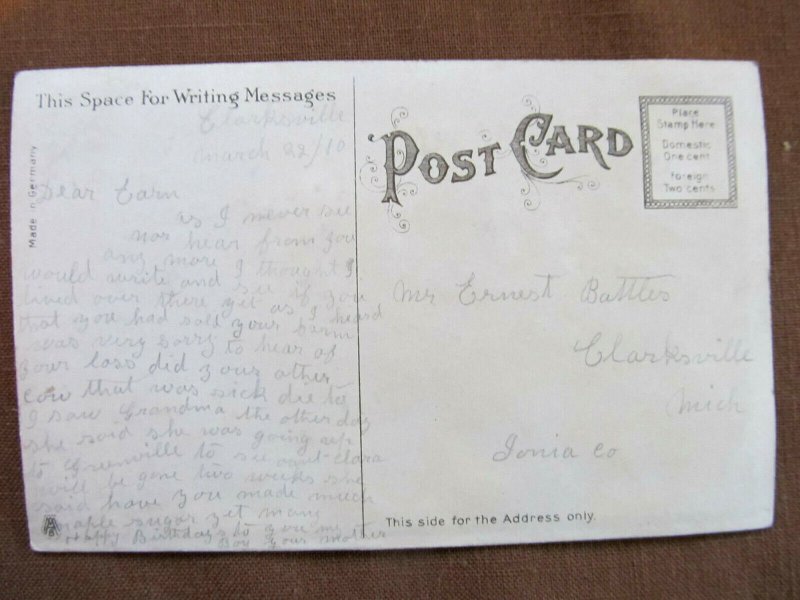 This Space For Writing Messages
Clarksville
March 22/10
Dear Earn
as I never see
nor hear from you
any more I thought I
would write and see if you
lived over there yet as I heard
that you had sold your farm
was very sorry to hear of
your loss did your other
cow that was sick die to
I saw Grandma the other day
she said she was going up
to Greenville to see aunt Clara
will be gone two weeks she
said have you made much
maple sugar yet many
Happy Birthdays to you my
Boy your mother
Made in Germany
POST CARD
Place
Stamp Here
Domestic
One cent
Foreign
Two cents
Mr Ernest Battles
Clarksville
Mich
Ionia Co
This side for the Address only.